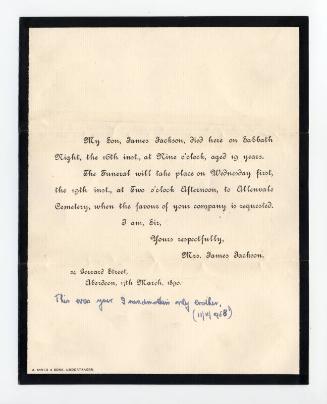 My Son, James Jackson, died here on Sabbath
Night, the 16th inst., at Nine o'clock, aged 19 years.
The Funeral will take place on Wednesday first,
the 19th inst., at Two o'clock Afternoon, to Allenvale
Cemetery, when the favour of your company is requested.
I am, Sir,
Yours respectfully,
Mrs. James Jackson.
Gerrard Street,
Aberdeen, 17th March, 1890.
This was your Grandmother's only brother,
& SONS, UNDERTAKERS.